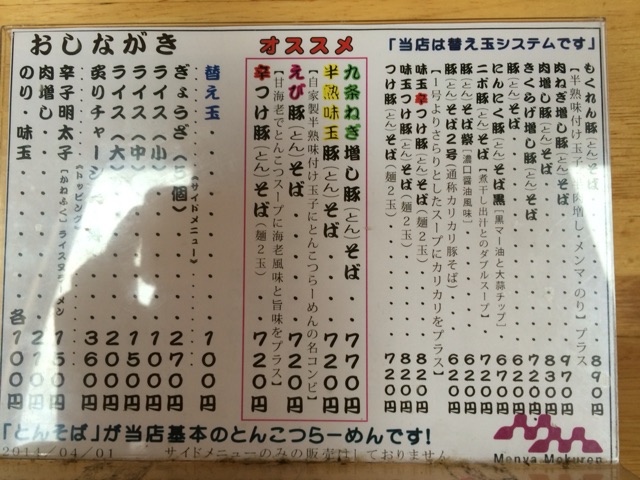 「当店は替え玉システムです」
もくれん豚(とん)そば 890円
【半熟味付け玉子・肉増し・メンマ・のり】プラス
肉ねぎ増し豚(とん)そば 970円
肉増し豚(とん)そば 830円
きくらげ増し豚(とん)そば 720円
豚(とん)そば 620円
にんにく豚(とん)そば黒【黒マー油と大蒜チップ】 670円
ニボ豚(とん)そば【煮干し出汁とのダブルスープ】 720円
豚(とん)そば紫【濃口醤油風味】 620円
豚(とん)そば2号(通称カリカリ豚そば) 620円
【1号よりさらりとしたスープにカリカリをプラス】
味玉辛つけ豚(とん)そば(麺2玉) 820円
味玉つけ豚(とん)そば(麺2玉) 820円
つけ豚(とん)そば(麺2玉) 720円
オススメ
九条ねぎ増し豚(とん)そば 770円
半熟味玉豚(とん)そば 720円
【自家製半熟味付け玉子にとんこつらーめんの名コンビ】
えび豚(とん)そば 720円
【甘海老でとんこつスープに海老風味と旨味をプラス】
辛つけ豚(とん)そば(麺2玉) 720円
おしながき
替え玉 100円
《サイドメニュー》
ぎょうざ(5個) 270円
ライス(小) 100円
ライス(中) 150円
ライス(大) 200円
炙りチャーシ 360円
《トッピング》
辛子明太子【かわふく】 150円
肉増し・ 210円
のり・味玉 各100円
「とんそば」が当店基本のとんこつらーめんです!
2014/04/01 サイドメニューのみの販売はしておりません
Menya Mokuren